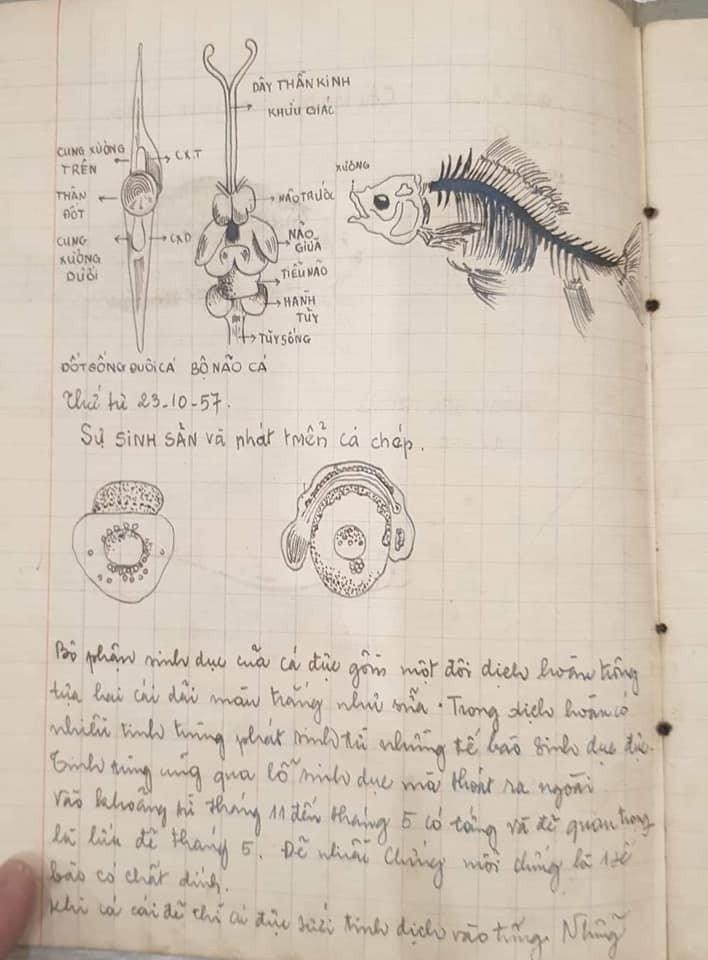 DÂY THẦN KINH
KHỨU GIÁC
CUNG XƯƠNG
TRÊN
C.X.T
THÂN
ĐỐT
CUNG
XƯƠNG
DƯỚI
CXD
NÃO TRƯỚC
NÃO
GIỮA
TIỂU NÃO
HÀNH
TỦY
TỦY SỐNG
XƯƠNG
ĐỐT SỐNG ĐUÔI CÁ BỘ NÃO CÁ
Thứ tư 23-10-57.
Sự SINH SẢN và phát triển cá chép.
Bộ phận sinh dục của cá đực gồm một đôi dịch hoàn trông
tựa hai cái dải màu trắng như sữa. Trong dịch hoàn có
nhiều tinh trùng phát sinh từ những tế bào sinh dục đực.
Tinh trùng qua lỗ sinh dục mà thoát ra ngoài
vào khoảng từ tháng 11 đến tháng 5 có và đẻ quan trọng
là lứa đẻ tháng 5. Đẻ nhiều trứng mỗi trứng là 1 tế
bào có chất dính.
Khi cá cái đẻ thì cá đực tưới tinh dịch vào trứng. Những